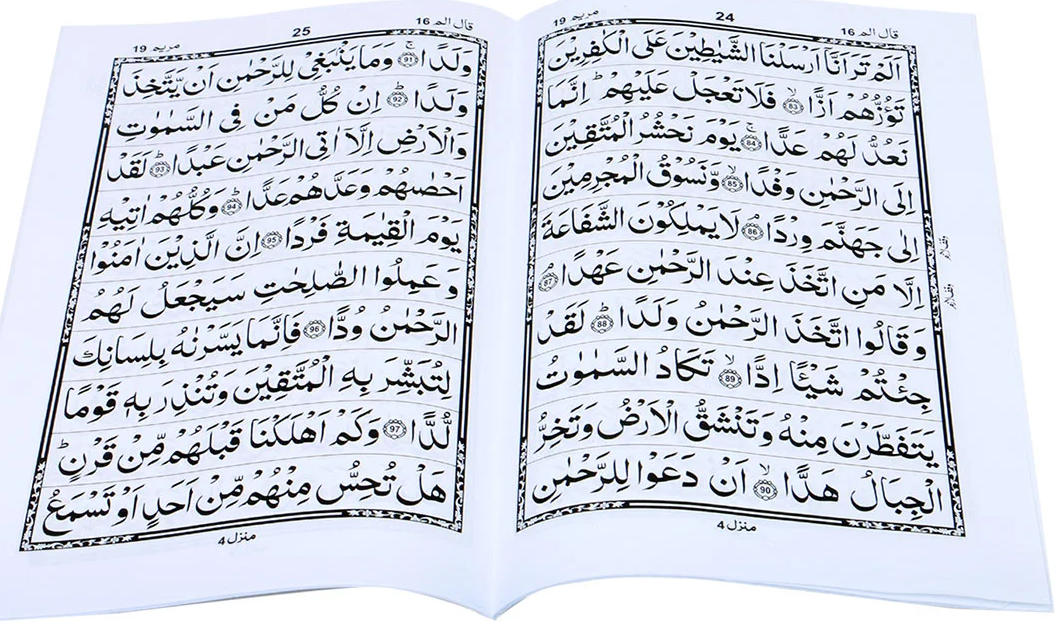 قال الم 16
24
مريم 19
اَلَمْ تَرَ اَنَّاۤ اَرْسَلْنَا الشَّيٰطِيْنَ عَلَى الْكٰفِرِيْنَ
تَؤُزُّهُمْ اَزًّا ۙ 83 فَلَا تَعْجَلْ عَلَيْهِمْ ؕ اِنَّمَا
نَعُدُّ لَهُمْ عَدًّا ۚ 84 يَوْمَ نَحْشُرُ الْمُتَّقِيْنَ
اِلَى الرَّحْمٰنِ وَفْدًا ۙ 85 وَّنَسُوْقُ الْمُجْرِمِيْنَ
اِلٰى جَهَنَّمَ وِرْدًا ۘ 86 لَا يَمْلِكُوْنَ الشَّفَاعَةَ
اِلَّا مَنِ اتَّخَذَ عِنْدَ الرَّحْمٰنِ عَهْدًا ۘ 87
وَقَالُوا اتَّخَذَ الرَّحْمٰنُ وَلَدًا ؕ 88 لَقَدْ
جِئْتُمْ شَيْـًٔا اِدًّا ۙ 89 تَكَادُ السَّمٰوٰتُ
يَتَفَطَّرْنَ مِنْهُ وَتَنْشَقُّ الْاَرْضُ وَتَخِرُّ
الْجِبَالُ هَدًّا ۙ 90 اَنْ دَعَوْا لِلرَّحْمٰنِ
منزل 4
قال الم 16
25
مريم 19
وَلَدًا ۚ 91 وَمَا يَنْۢبَغِيْ لِلرَّحْمٰنِ اَنْ يَّتَّخِذَ
وَلَدًا ؕ 92 اِنْ كُلُّ مَنْ فِى السَّمٰوٰتِ
وَالْاَرْضِ اِلَّاۤ اٰتِى الرَّحْمٰنِ عَبْدًا ؕ 93 لَقَدْ
اَحْصٰىهُمْ وَعَدَّهُمْ عَدًّا ؕ 94 وَكُلُّهُمْ اٰتِيْهِ
يَوْمَ الْقِيٰمَةِ فَرْدًا 95 اِنَّ الَّذِيْنَ اٰمَنُوْا
وَعَمِلُوا الصّٰلِحٰتِ سَيَجْعَلُ لَهُمُ
الرَّحْمٰنُ وُدًّا 96 فَاِنَّمَا يَسَّرْنٰهُ بِلِسَانِكَ
لِتُبَشِّرَ بِهِ الْمُتَّقِيْنَ وَتُنْذِرَ بِهٖ قَوْمًا
لُّدًّا 97 وَكَمْ اَهْلَكْنَا قَبْلَهُمْ مِّنْ قَرْنٍ ؕ
هَلْ تُحِسُّ مِنْهُمْ مِّنْ اَحَدٍ اَوْ تَسْمَعُ
منزل 4